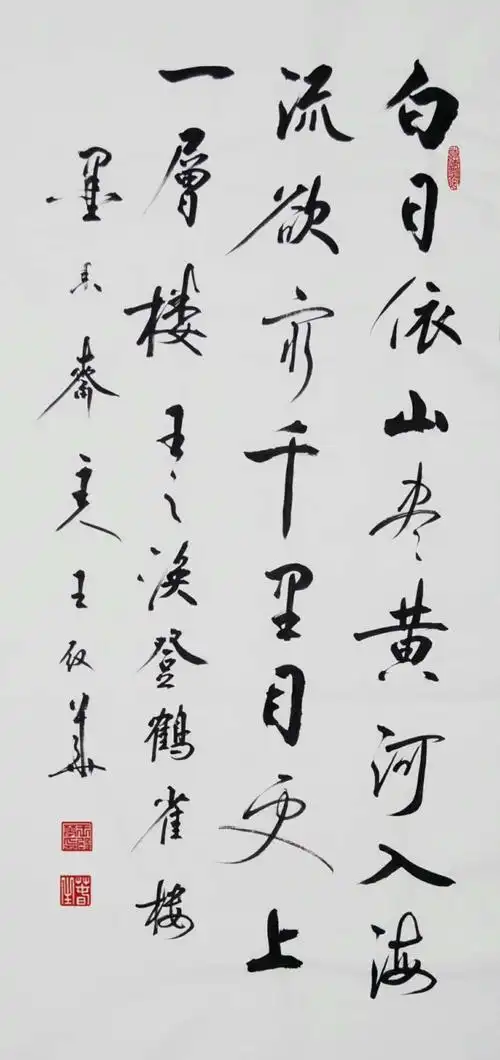 白日依山尽黄河入海
流欲穷千里目更上
一層楼王之涣登鶴雀楼
墨真斋主人王友華